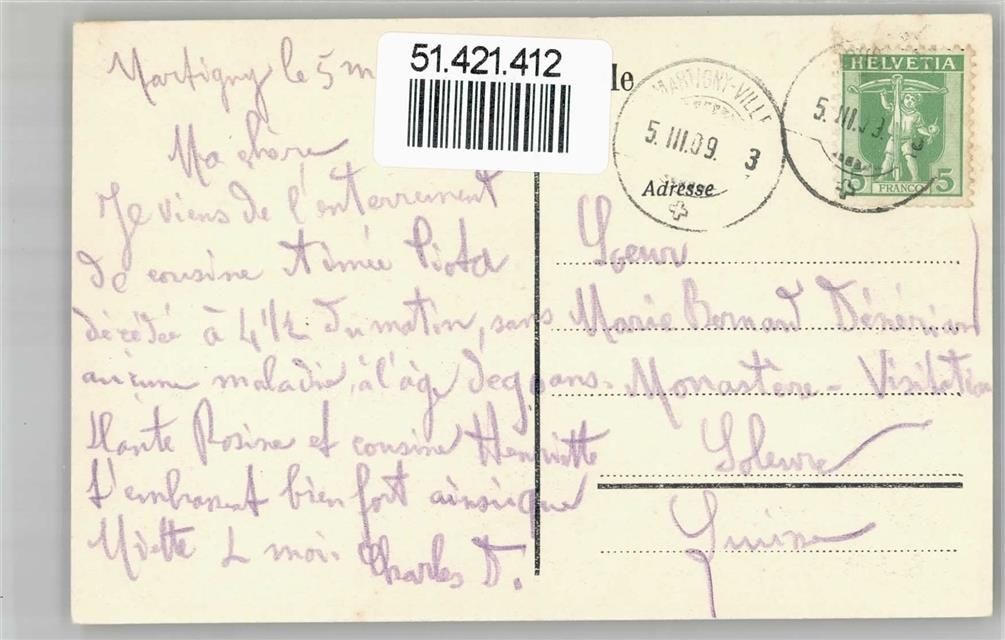 Martigny le 5 m
Ma chère
Je viens de l'enterrement
de cousine Aimée Piota
décédée à 4 1/2 du matin, sans
aucune maladie, à l'âge de 90 ans.
Tante Rosine et cousine Henriette
t'embrassent bien fort ainsi que
Miette & moi. Charles D.
51.421.412
le
MARTIGNY-VILLE
5.III.09. 3
5.III.09.
HELVETIA
5 FRANCO 5
Adresse
Soeur
Marie Bernard Dénériaz
Monastère - Visitation
Soleure
Suisse